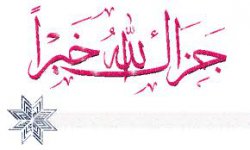 جزاك الله خيراً